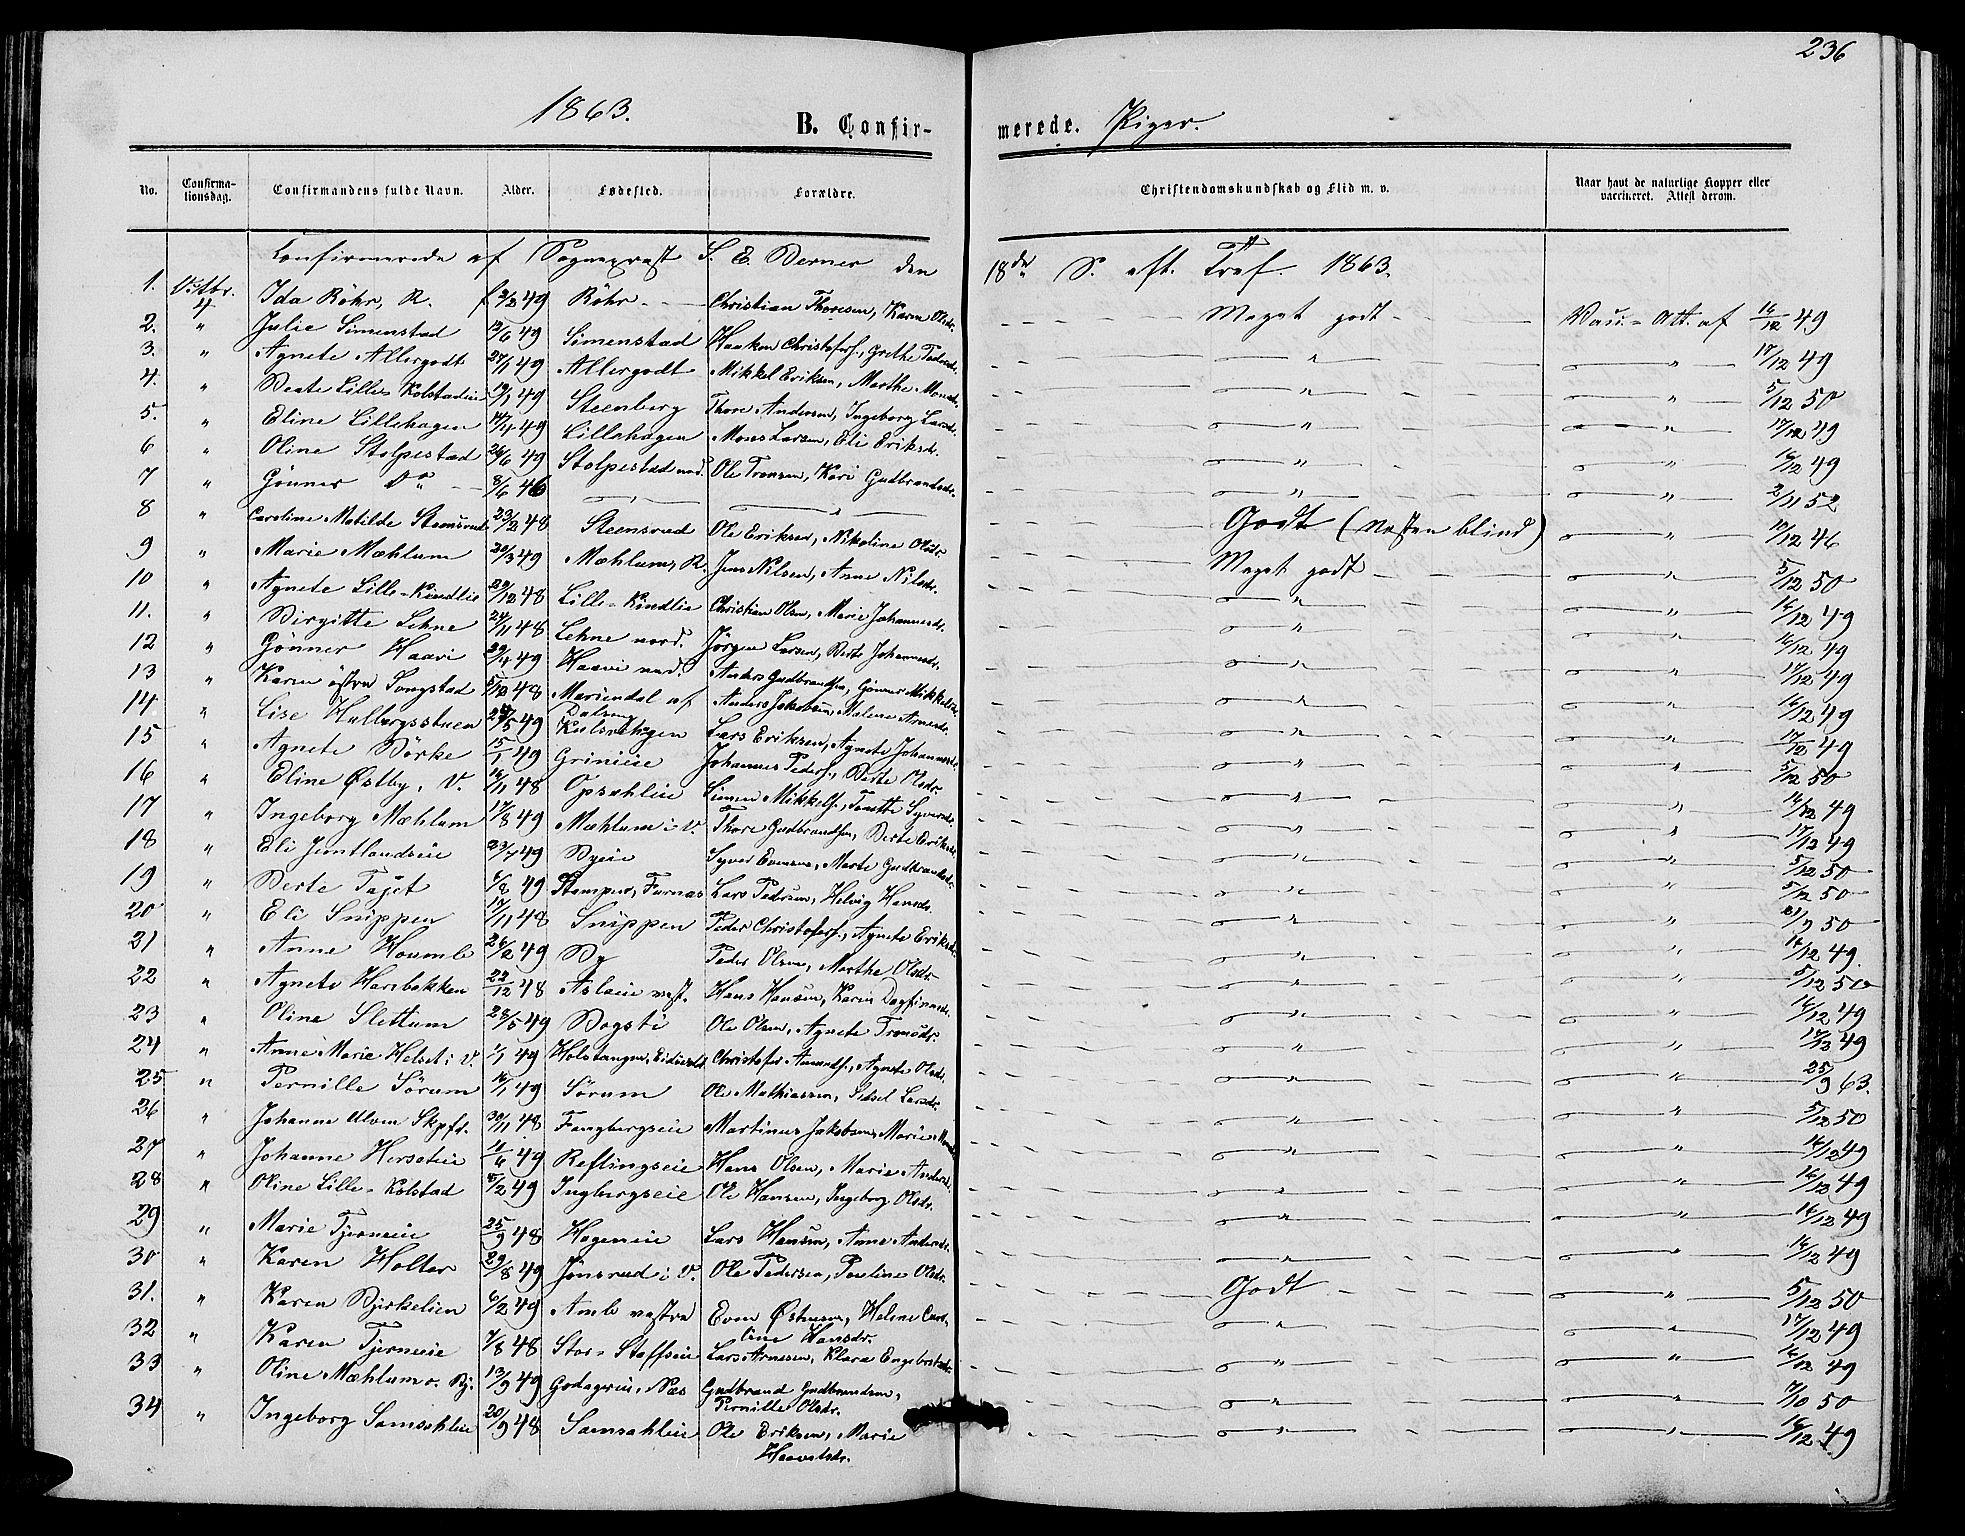 236
1863.
B. Confirmerede. Piger.
No. Confirmationsdag. Confirmandens fulde Navn. Alder. Fødested. Forældre. Christendomskundskab og Flid m. v. Naar havt de naturlige Kopper eller vaccineret. Attest derom.
Confirmerede af Sognepræst S. E. Berner den 18de S. eft. Tref. 1863.
1. Octbr. 4 Ida Röhr, R. 49 Röhr Christian Thoresen, Karen Olsdr. Meget godt Vacc. Att. af 16/12 49
2. " Julie Simenstad 12/6 49 Simenstad Haaken Christofers., Grethe Pedersdr. " " 17/12 49
3. " Agnete Allergodt 27/1 49 Allergodt Mikkel Eriksen, Marthe Monsdr. " " 5/12 50
4. " Beate Lille-Kolstadeie 49 Steenberg Thore Andersen, Ingeborg Larsdr. " " 17/12 49
5. " Eline Lillehagen 49 Lillehagen Mons Larsen, Eli Eriksdr. " " 16/12 49
6 " Oline Stolpestad 26/6 49 Stolpestad nord. Ole Tronsen, Kari Gudbrandsdr. " " 2/11 52
7 " Gönner Do 8/6 46 — " Godt (næsten blind) " 17/12 46
8 " Caroline Matilde Steensrud 23/2 48 Steensrud Ole Eriksen, Nikoline Olsdr. Meget godt " 5/12 50
9 " Marie Mæhlum 20/3 49 Mæhlum, R. Jens Nilsen, Anne Nilsdr. " " 16/12 49
10 " Agnete Lille-Kindlie 29/12 48 Lille-Kindlie Christian Olsen, Marie Johannesdr. " " 16/12 49
11. " Birgitte Lehne 24/11 48 Lehne nord. Jörgen Larsen, Berte Johannesdr. " " 17/12 49
12 " Gönner Haavi 29/4 49 Haavi nord. Anders Gudbrandsen, Gönner Mikkelsdr. " " 16/12 49
13 " Karen östre Songstad 5/12 48 Mariendal af Dalseng Anders Jakobsen, Malene Arnesdr. " " 17/12 49
14 " Lise Hulbergsstuen 49 Lars Eriksen, Agnete Johannesdr. " " 5/12 50
15 " Agnete Börke 15/1 49 Grinieie Johannes Peders., Berte Olsdr. " " 16/12 49
16 " Eline Østby, V. 16/11 48 Opsahleie Simen Mikkels., Tonette Syversdr. " " 17/12 49
17 " Ingeborg Mæhlum 17/8 49 Mæhlum i V. Thore Gudbrandsen, Berte Eriksdr. " " 5/12 50
18 " Eli Jemtlandseie 23/7 49 Byeie Syver Evensen, Marte Gudbrandsdr. " " 5/12 50
19 " Berte Tajet 6/8 49 Stampen, Furnæs Lars Pedersen, Helvig Hansdr. " " 50
20 " Eli Snippen 17/11 48 Snippen Peder Christofers., Agnete Eriksdr. " " 16/12 49.
21 " Anne Houmb 26/2 49 By Peder Olsen, Marthe Olsdr. " " 5/12 50
22 " Agnete Harebakken 22/12 48 Aslaeie vest. Hans Hansen, Karen Dagfinnsdr. " " 16/12 49
23 " Oline Slettum 28/5 49 Bogsti Ole Olsen, Agnete Tronsdr. " " 17/12 49
24 " Anne Marie Helset i V. 1/1 49 Holstangen, Eidsvold Christofer Amunds., Agnete Olsdr. " " 25/9 63.
25 " Pernille Sörum 16/1 49 Sörum Ole Mathiassen, Sidsel Larsdr. " " 5/12 50
26 " Johanne Ulven Skpfr. 30/11 48 Fangbergseie Martinus Jakobsen, Marie " " 16/12 49
27 " Johanne Herseteie 11/6 49 Reflingseie Hans Olsen, Marie Andersdr. " " 16/12 49
28 " Oline Lille-Kolstad 8/2 49 Ingbergseie Ole Hansen, Ingeborg Olsdr. " " 16/12 49
29 " Marie Tjerneie 25/9 48 Hageneie Lars Hansen, Anne Andersdr. " " 16/12 49
30 " Karen Holter 29/8 49 Jönsrud i V. Ole Pedersen, Pauline Olsdr. Godt " 5/12 50
31. " Karen Bjerkelien 6/2 49 Amb vestre Even Østensen, Helene Caroline Hansdr. " " 17/12 49
32 " Karen Tjerneie 7/8 48 Stor-Staffseie Lars Arnesen, Klara Engebretsdr. " " 16/12 49
33 " Oline Mæhlum o. Bj. 13/9 49 Godagereie, Næs Gudbrand Gudbrandsen, Pernille Olsdr. " " 7/10 50
34 " Ingeborg Samsahleie 20/9 48 Samsahleie Ole Eriksen, Marie Haavelsdr. " " 16/12 49